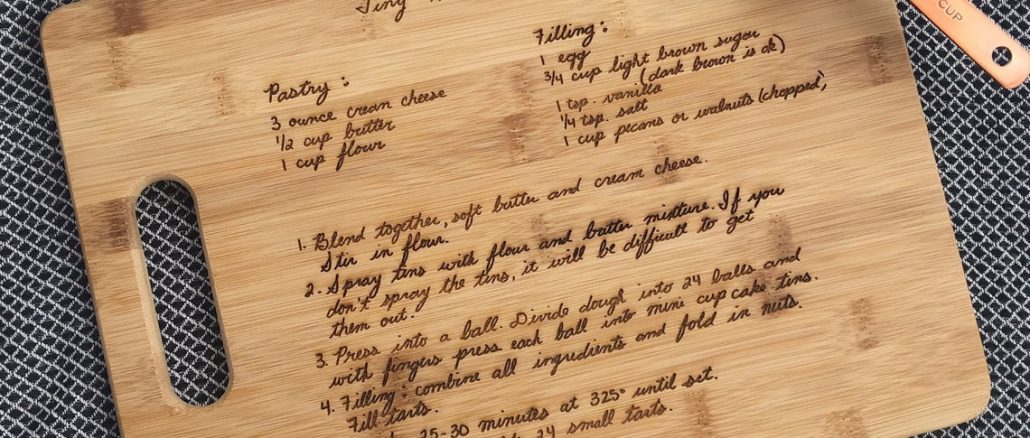 Tiny
CUP
Pastry :
3 ounce cream cheese
1/2 cup butter
1 cup flour
Filling :
1 egg
3/4 cup light brown sugar
(dark brown is ok)
1 tsp. vanilla
1/4 tsp. salt
1 cup pecans or walnuts (chopped)
1. Blend together, soft butter and cream cheese.
Stir in flour.
2. Spray tins with flour and butter mixture. If you
don't spray the tins, it will be difficult to get
them out.
3. Press into a ball. Divide dough into 24 balls and
with fingers press each ball into mini cupcake tins.
4. Filling : combine all ingredients and fold in nuts.
Fill tarts.
25-30 minutes at 325° until set.
24 small tarts.